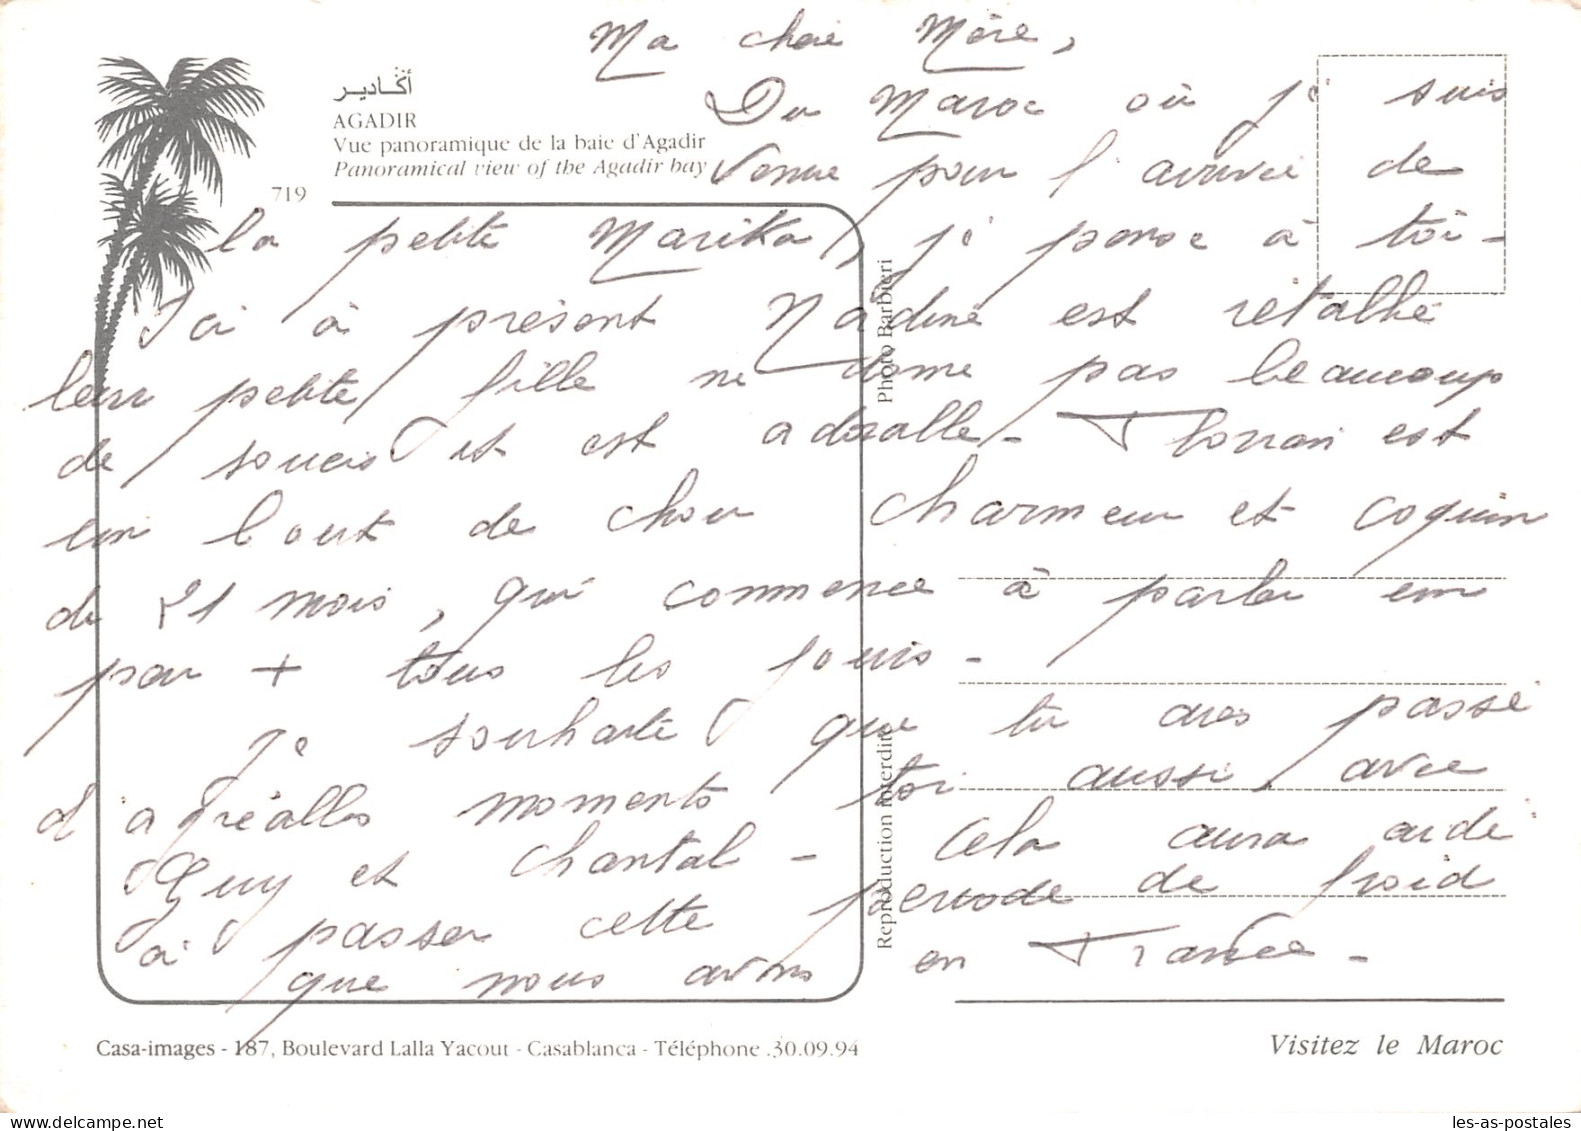 Ma chère Mère,
أگادير
AGADIR
Vue panoramique de la baie d'Agadir
Panoramical view of the Agadir bay
719
Du Maroc où je suis
venue pour l'arrivée de
la petite Marika, je pense à toi -
Ici à présent Nadine est rétablie
leur petite fille ne donne pas beaucoup
de soucis et est adorable - Florian est
un bout de chou charmeur et coquin
de 21 mois, qui commence à parler un
peu + tous les jours -
Je souhaite que tu aies passé
d'agréables moments toi aussi avec
Guy et Chantal - Cela aura aidé
à passer cette période de froid
que nous avons en France -
Photo Barbieri
Reproduction Interdite
Casa-images - 187, Boulevard Lalla Yacout - Casablanca - Téléphone .30.09.94
Visitez le Maroc
les-as-postales